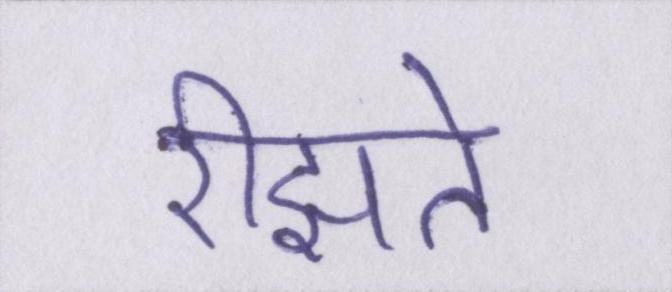 रीझते